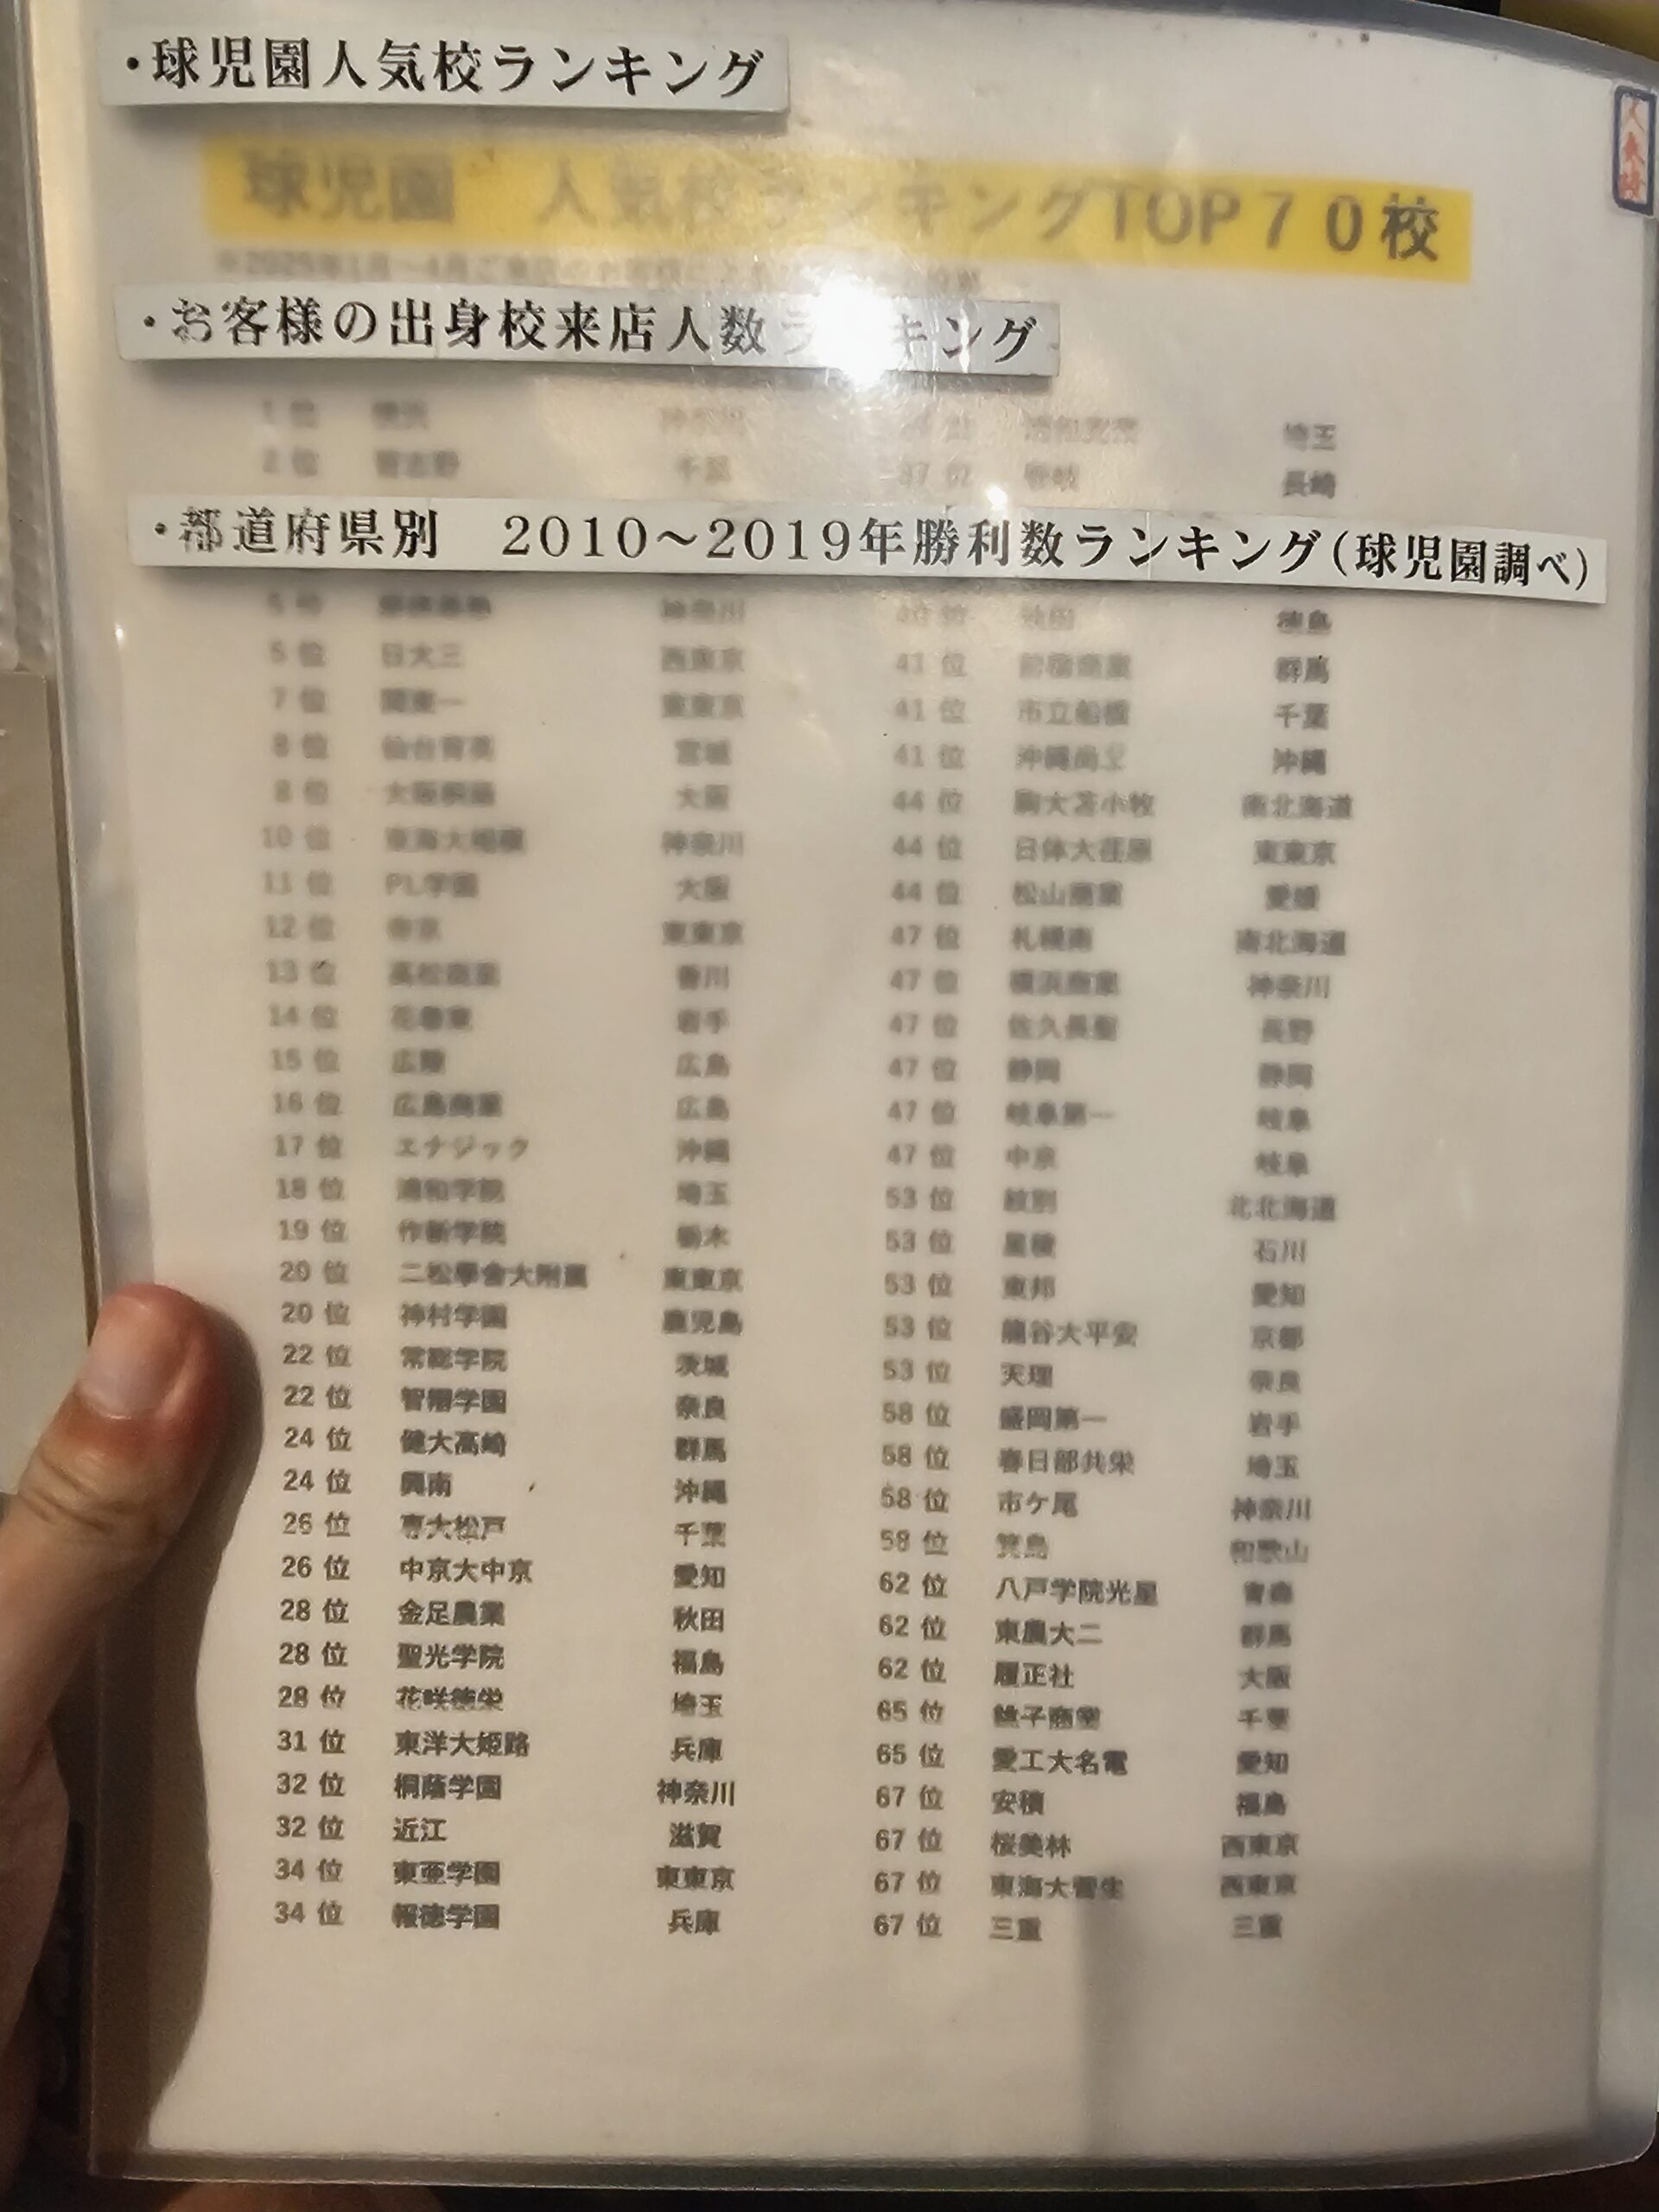 ・球児園人気校ランキング
球児園 人気校ランキングTOP70校
・お客様の出身校来店人数ランキング
1位 横浜 神奈川 位 浦和実業 埼玉
2位 習志野 千葉 37位 壱岐 長崎
・都道府県別 2010～2019年勝利数ランキング(球児園調べ)
神奈川 40位 池田 徳島
5位 日大三 西東京 41位 前橋商業 群馬
7位 関東一 東東京 41位 市立船橋 千葉
8位 仙台育英 宮城 41位 沖縄尚学 沖縄
8位 大阪桐蔭 大阪 44位 駒大苫小牧 南北海道
10位 東海大相模 神奈川 44位 日体大荏原 東東京
11位 PL学園 大阪 44位 松山商業 愛媛
12位 帝京 東東京 47位 札幌南 南北海道
13位 高松商業 香川 47位 横浜商業 神奈川
14位 花巻東 岩手 47位 佐久長聖 長野
15位 広陵 広島 47位 静岡 静岡
16位 広島商業 広島 47位 岐阜第一 岐阜
17位 エナジック 沖縄 47位 中京 岐阜
18位 浦和学院 埼玉 53位 紋別 北北海道
19位 作新学院 栃木 53位 星稜 石川
20位 二松學舍大附属 東東京 53位 東邦 愛知
20位 神村学園 鹿児島 53位 龍谷大平安 京都
22位 常総学院 茨城 53位 天理 奈良
22位 智辯学園 奈良 58位 盛岡第一 岩手
24位 健大高崎 群馬 58位 春日部共栄 埼玉
24位 興南 沖縄 58位 市ケ尾 神奈川
26位 専大松戸 千葉 58位 箕島 和歌山
26位 中京大中京 愛知 62位 八戸学院光星 青森
28位 金足農業 秋田 62位 東農大二 群馬
28位 聖光学院 福島 62位 履正社 大阪
28位 花咲徳栄 埼玉 65位 銚子商業 千葉
31位 東洋大姫路 兵庫 65位 愛工大名電 愛知
32位 桐蔭学園 神奈川 67位 安積 福島
32位 近江 滋賀 67位 桜美林 西東京
34位 東亜学園 東東京 67位 東海大菅生 西東京
34位 報徳学園 兵庫 67位 三重 三重